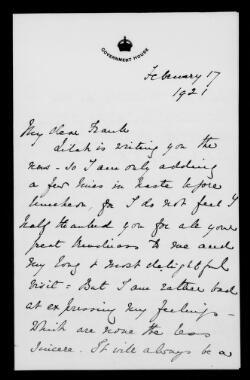 GOVERNMENT HOUSE
February 17
1921
My dear Frank
is writing you the
news - so I am only adding
a few lines in haste before
luncheon, for I do not feel I
half thanked you for all your
great kindness to me and
my long & most delightful
visit - But I am rather bad
at expressing my feelings -
which are none the less
sincere. It will always be a